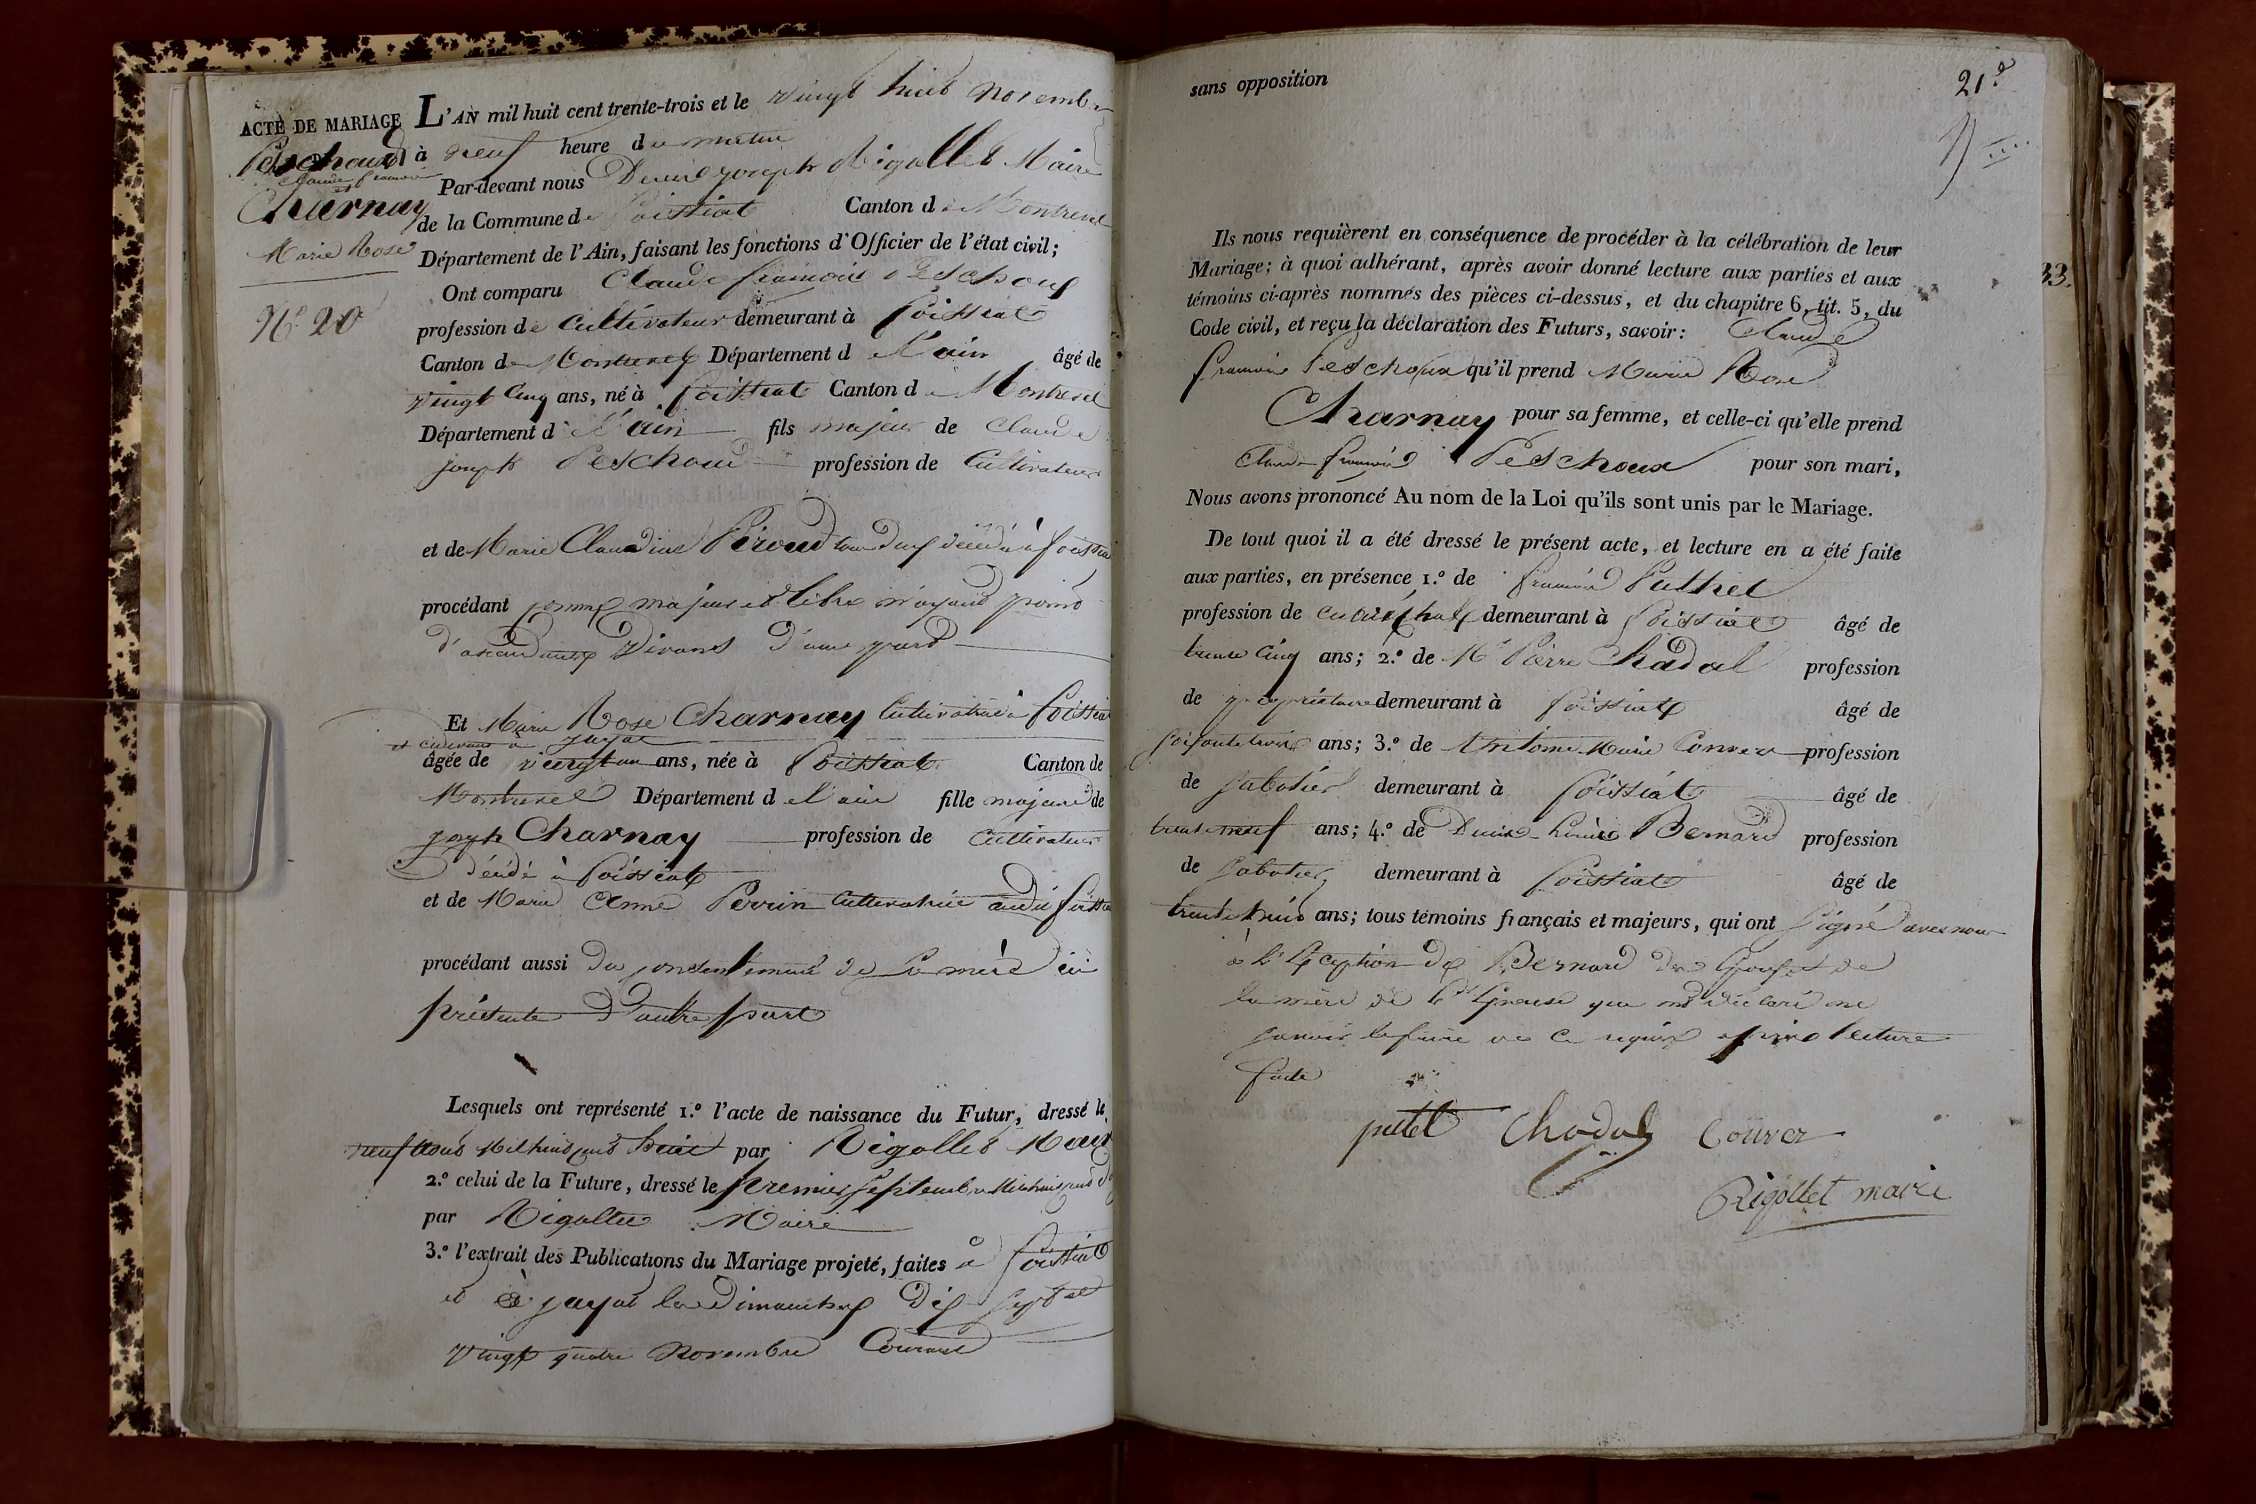 ACTE DE MARIAGE
Peschoud
Claude françois
et
Charnay
Marie Rose
N.º 20
L'AN mil huit cent trente-trois et le vingt huit novembre
à neuf heure du matin
Par-devant nous Denis joseph Rigollet Maire
de la Commune de foissiat Canton de Montrevel
Département de l'Ain, faisant les fonctions d'Officier de l'état civil;
Ont comparu Claude françois Peschoux
profession de Cultivateur demeurant à foissiat
Canton de Montrevel Département de l'ain âgé de
vingt Cinq ans, né à foissiat Canton de Montrevel
Département de l'ain fils majeur de Claude
joseph Peschoud profession de Cultivateur
et de Marie Claudine Piroud tous deux décédé à foissiat
procédant comme majeur et libre n'ayant point
d'ascendants vivans d'une part
Et Marie Rose Charnay Cultivatrice à foissiat
et cidevant à jayat
âgée de vingt un ans, née à foissiat Canton de
Montrevel Département de l'ain fille majeure de
joseph Charnay profession de Cultivateur
décédé à foissiat
et de Marie Anne Perrin Cultivatrice audit foissiat
procédant aussi du consentement de sa mère ici
présente d'autre part
Lesquels ont représenté 1.º l'acte de naissance du Futur, dressé le
neuf aout Mil huit cent huit par Rigollet Maire
2.º celui de la Future, dressé le premier septembre Mil huit cent
par Rigollet Maire
3.º l'extrait des Publications du Mariage projeté, faites à foissiat
et à jayat les dimanches dix sept et
vingt quatre novembre Courant
sans opposition
21.e
33.
Ils nous requièrent en conséquence de procéder à la célébration de leur
Mariage; à quoi adhérant, après avoir donné lecture aux parties et aux
témoins ci-après nommés des pièces ci-dessus, et du chapitre 6, tit. 5, du
Code civil, et reçu la déclaration des Futurs, savoir: Claude
françois Peschoux qu'il prend Marie Rose
Charnay pour sa femme, et celle-ci qu'elle prend
Claude françois Peschoux pour son mari,
Nous avons prononcé Au nom de la Loi qu'ils sont unis par le Mariage.
De tout quoi il a été dressé le présent acte, et lecture en a été faite
aux parties, en présence 1.º de françois Puthet
profession de maréchal demeurant à foissiat âgé de
trente Cinq ans; 2.º de M.r Pierre Chadal profession
de propriétaire demeurant à foissiat âgé de
soisante trois ans; 3.º de Antoine Marie Convert profession
de sabotier demeurant à foissiat âgé de
trente neuf ans; 4.º de Denis Louis Bernard profession
de sabotier demeurant à foissiat âgé de
trente huit ans; tous témoins français et majeurs, qui ont signé avec nous
à l'exception de Bernard des Epoux et de
la mère de l'Epouse qui ont déclaré ne
savoir le faire de ce requis après lecture
faite
putet Chadal Couver
Rigollet maire